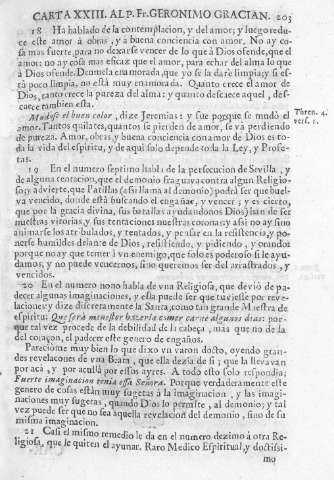 CARTA XXIII. AL P. Fr. GERONIMO GRACIAN. 203
18 Ha hablado de la contemplacion, y del amor; y luego redu-
ce este amor à obras, y a buena conciencia con amor. No ay co-
sa mas fuerte, para no dexarse vencer de lo que à Dios ofende, que el
amor: no ay cosa mas eficaz que el amor, para echar del alma lo que
à Dios ofende. Deumela enamorada, que yo se la darè limpia; y si es-
tà poco limpia, no està muy enamorada. Quanto crece el amor de
Dios, tanto crece la pureza del alma: y quanto descaece aquel, des-
caece tambien esta.
Mudose el buen color, dize Jeremias: y fue porque se mudò el
amor. Tantos quilates, quantos se pierden de amor, se và perdiendo
de pureza. Amor, obras, y buena conciencia con amor de Dios es to-
da la vida del espiritu, y de aqui solo depende toda la Ley, y Profe-
tas.
Thren. 4.
vers. 1.
19 En el numero septimo habla de la persecucion de Sevilla, y
de alguna tentacion, que el demonio fraguava contra algun Religio-
so; y advierte, que Patillas (assi llama al demonio) podrà ser que buel-
va vencido, donde està buscando el engañar, y vencer; y es cierto,
que por la gracia divina, sus batallas (ayudandonos Dios) han de ser
nuestras vitorias, y sus tentaciones nuestras coronas: y assi no ay sino
animarse los atribulados, y tentados, y pensar en la resistencia, y po-
nerse humildes delante de Dios, resistiendo, y pidiendo, y orando:
porque no ay que temer à un enemigo, que solo es poderoso si le ayu-
damos, y no puede vencernos, sino queremos ser del arrastrados, y
vencidos.
20 En el numero nono habla de una Religiosa, que deviò de pa-
decer algunas imaginaciones, y esta puede ser que tuviesse por reve-
laciones: y dize discretamente la Santa, como tan grande Maestra de
espiritu: Que serà menester hazerla comer carne algunos dias: por-
que tal vez procede de la debilidad de la cabeça, mas que no de la
del coraçon, el padecer este genero de engaños.
Pareciome muy bien lo que dixo un varon docto, oyendo gran-
des revelaciones de una Beata, que ella dezia de si; que la llevavan
por acà, y por acullà por essos ayres. A todo esto solo respondia:
Fuerte imaginacion tenia essa Señora. Porque verdaderamente este
genero de cosas estàn muy sugetas à la imaginacion, y las imagi-
naciones muy sugetas, quando Dios lo permite, al demonio; y tal
vez puede ser que no sea aquella revelacion del demonio, sino de su
misma imaginacion.
21 Casi el mismo remedio le da en el numero dezimo à otra Re-
ligiosa, que le quiten el ayunar. Raro Medico Espiritual, y doctissi-
mo